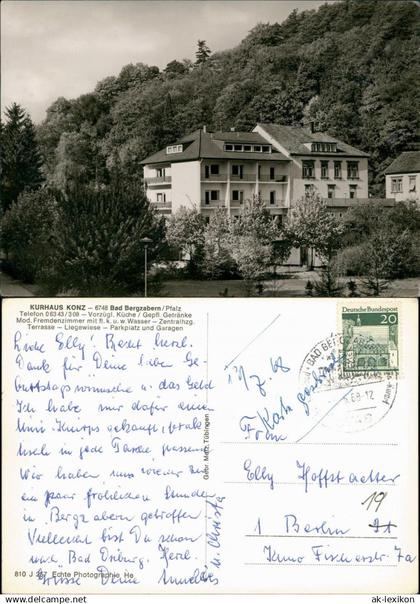 KURHAUS KONZ — 6748 Bad Bergzabern/Pfalz
Telefon 0 63 43/3 08 — Vorzügl. Küche / Gepfl. Getränke
Mod. Fremdenzimmer mit fl. k. u. w. Wasser — Zentralhzg.
Terrasse — Liegewiese — Parkplatz und Garagen
Liebe Elly! Besten herzl.
Dank für Deine lieben Ge-
burtstagswünsche u. das Geld
Ich habe mir dafür einen
Mini-Knirps gekauft, prak
tisch in jede Tasche passend
Wir haben uns wieder zu
ein paar fröhlichen Stunden
in Bergzabern getroffen
Vielleicht bist Du schon
nach Bad Driburg. Herzl.
Grüsse Deine Anneliese
u. Christa
810 J 387 Echte Photographie He
Gebr. Metz, Tübingen
DEUTSCHE BUNDESPOST
20
BAD BERG
68-12
Karte
Frau
Elly Hoffstaetter
19
1 Berlin
Kuno Fischerstr. 7a
ak-lexikon